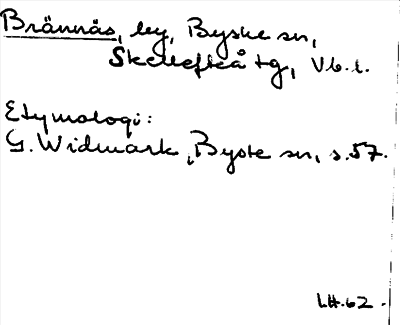 Brännäs, by, Byske sn,
Skellefteå tg, Vb. l.
Etymologi:
G. Widmark, Byske sn, s. 57.
LH. 62.